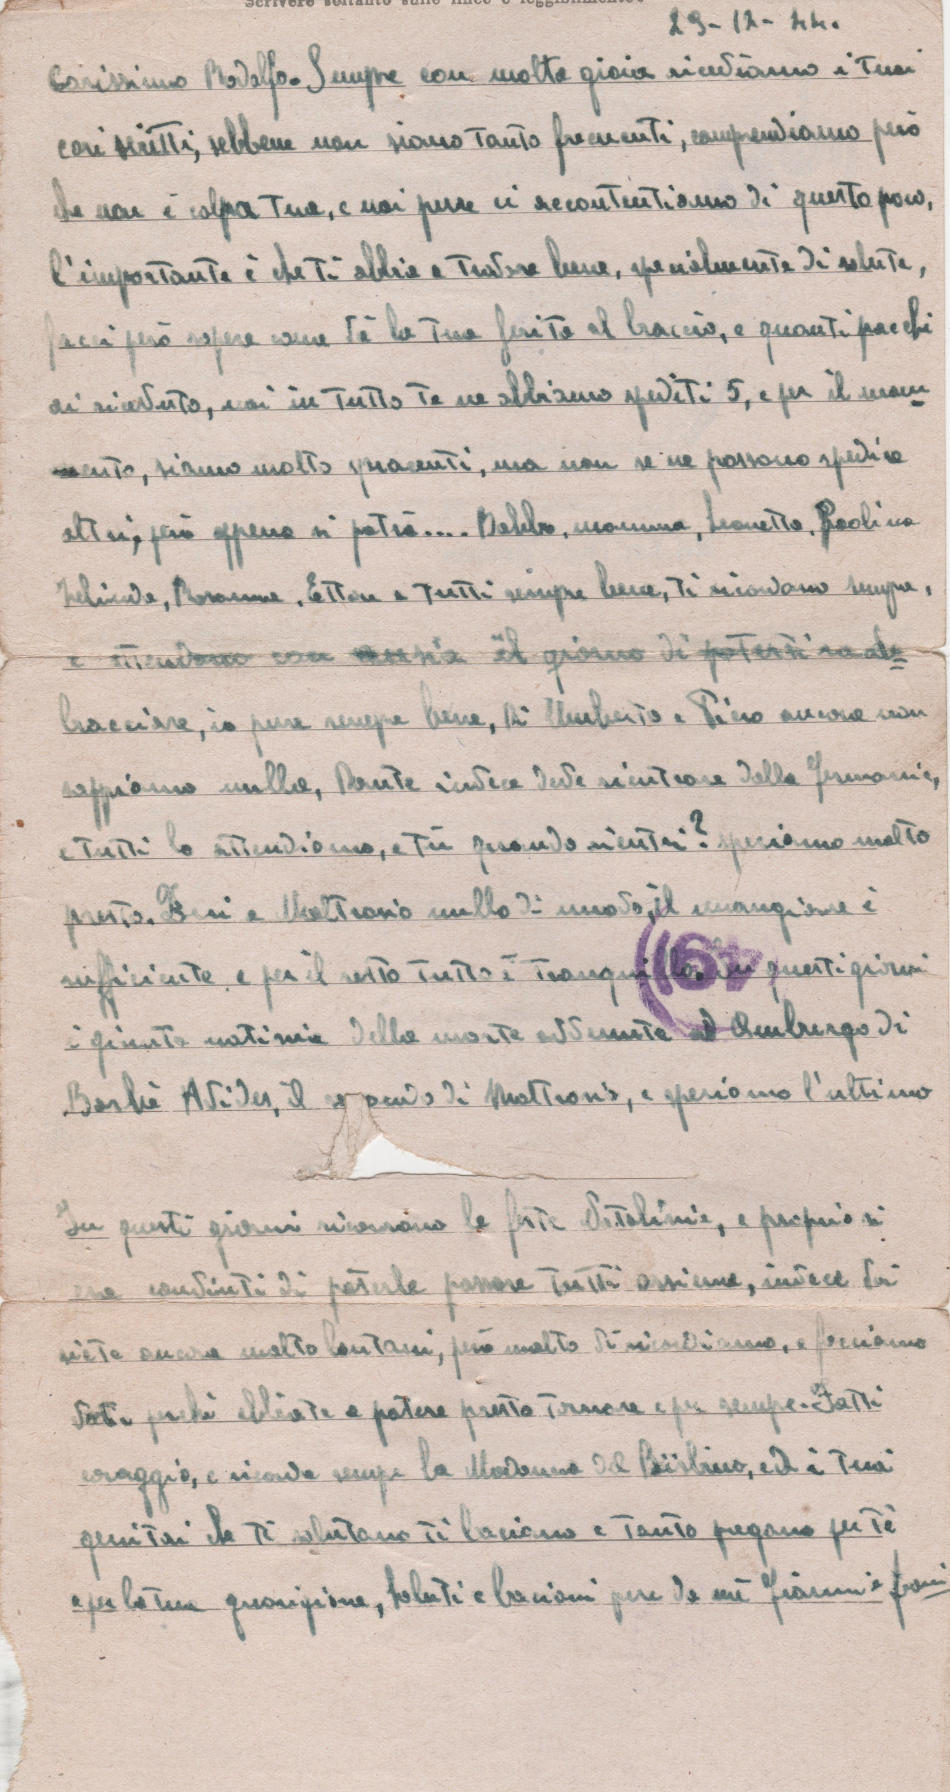 Scrivere soltanto sulle linee e leggibilmente.
29-12-44.
Carissimo Rodolfo. Sempre con molta gioia riceviamo i tuoi
cari scritti, sebbene non siano tanto frequenti, comprendiamo però
che non è colpa tua, e noi pure ci accontentiamo di questo poco,
l'importante è che ti abbia a trovare bene, specialmente di salute,
facci però sapere come và la tua ferita al braccio, e quanti pacchi
ai ricevuto, noi in tutto te ne abbiamo spediti 5, e per il mom-
mento, siamo molto spiacenti, ma non se ne possono spedire
altri, però appena si potrà.... Babbo, mamma, Paolina
Rosanna, Ettore e tutti sempre bene, ti ricordano sempre,
e attendono con ansia il giorno di poterti riab-
bracciare, io pure sempre bene, di Umberto e Piero ancora non
sappiamo nulla, Dante invece deve rientrare dalla Germania,
e tutti lo attendiamo, e tù quando rientri? speriamo molto
presto. Quì a Moltrasio nulla di nuovo, il mangiare è
sufficiente e per il resto tutto è tranquillo, in questi giorni
è giunta notizia della morte avvenuta ad Amburgo di
Avides, il secondo di Moltrasio, e speriamo l'ultimo
In questi giorni ricorrono le feste Natalizie, e proprio si
era convinti di poterle passare tutti assieme, invece voi
siete ancora molto lontani, però molto vi ricordiamo, e facciamo
voti perchè abbiate a potere presto tornare e per sempre. Fatti
coraggio, e ricorda sempre la Madonna del Bisbino, ed i tuoi
genitori che ti salutano ti baciano e tanto pregano per tè
e per la tua guarigione, saluti e bacioni pure da mè Gianni e